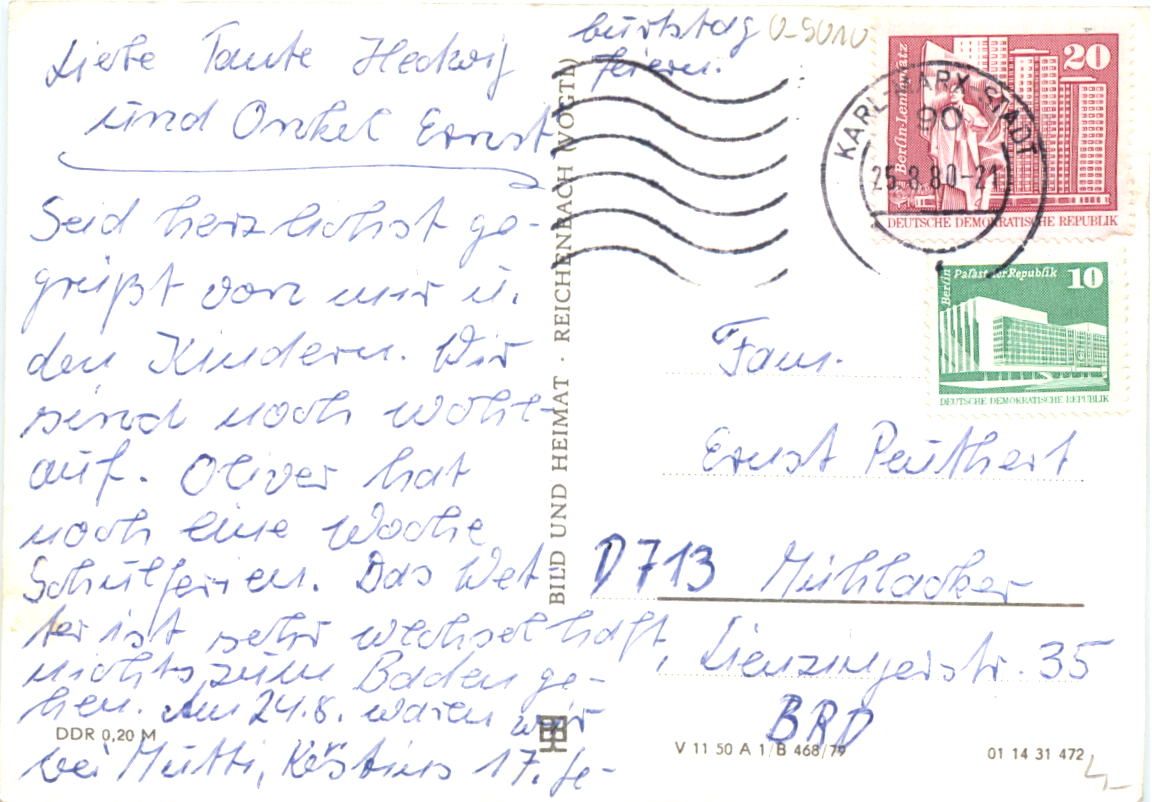 Liebe Tante Hedwig
und Onkel Ernst
Seid herzlichst ge-
grüßt von mir u.
den Kindern. Wir
sind noch wohl-
auf. Oliver hat
noch eine Woche
Schulferien. Das Wet-
ter ist sehr wechselhaft,
nichts zum Baden ge-
hen. Am 24.8. waren wir
bei Mutti, Kerstins 17. Ge-
burtstag
feiern.
0-9010
BILD UND HEIMAT · REICHENBACH (VOGTL)
KARL-MARX-STADT
90
25.8.80-21
Berlin-Leninplatz
20
DEUTSCHE DEMOKRATISCHE REPUBLIK
Berlin Palast der Republik
10
DEUTSCHE DEMOKRATISCHE REPUBLIK
Fam.
Ernst Peuthert
D713 Mühlacker
Lienzingerstr. 35
BRD
DDR 0,20 M
V 11 50 A 1/B 468/79
01 14 31 472